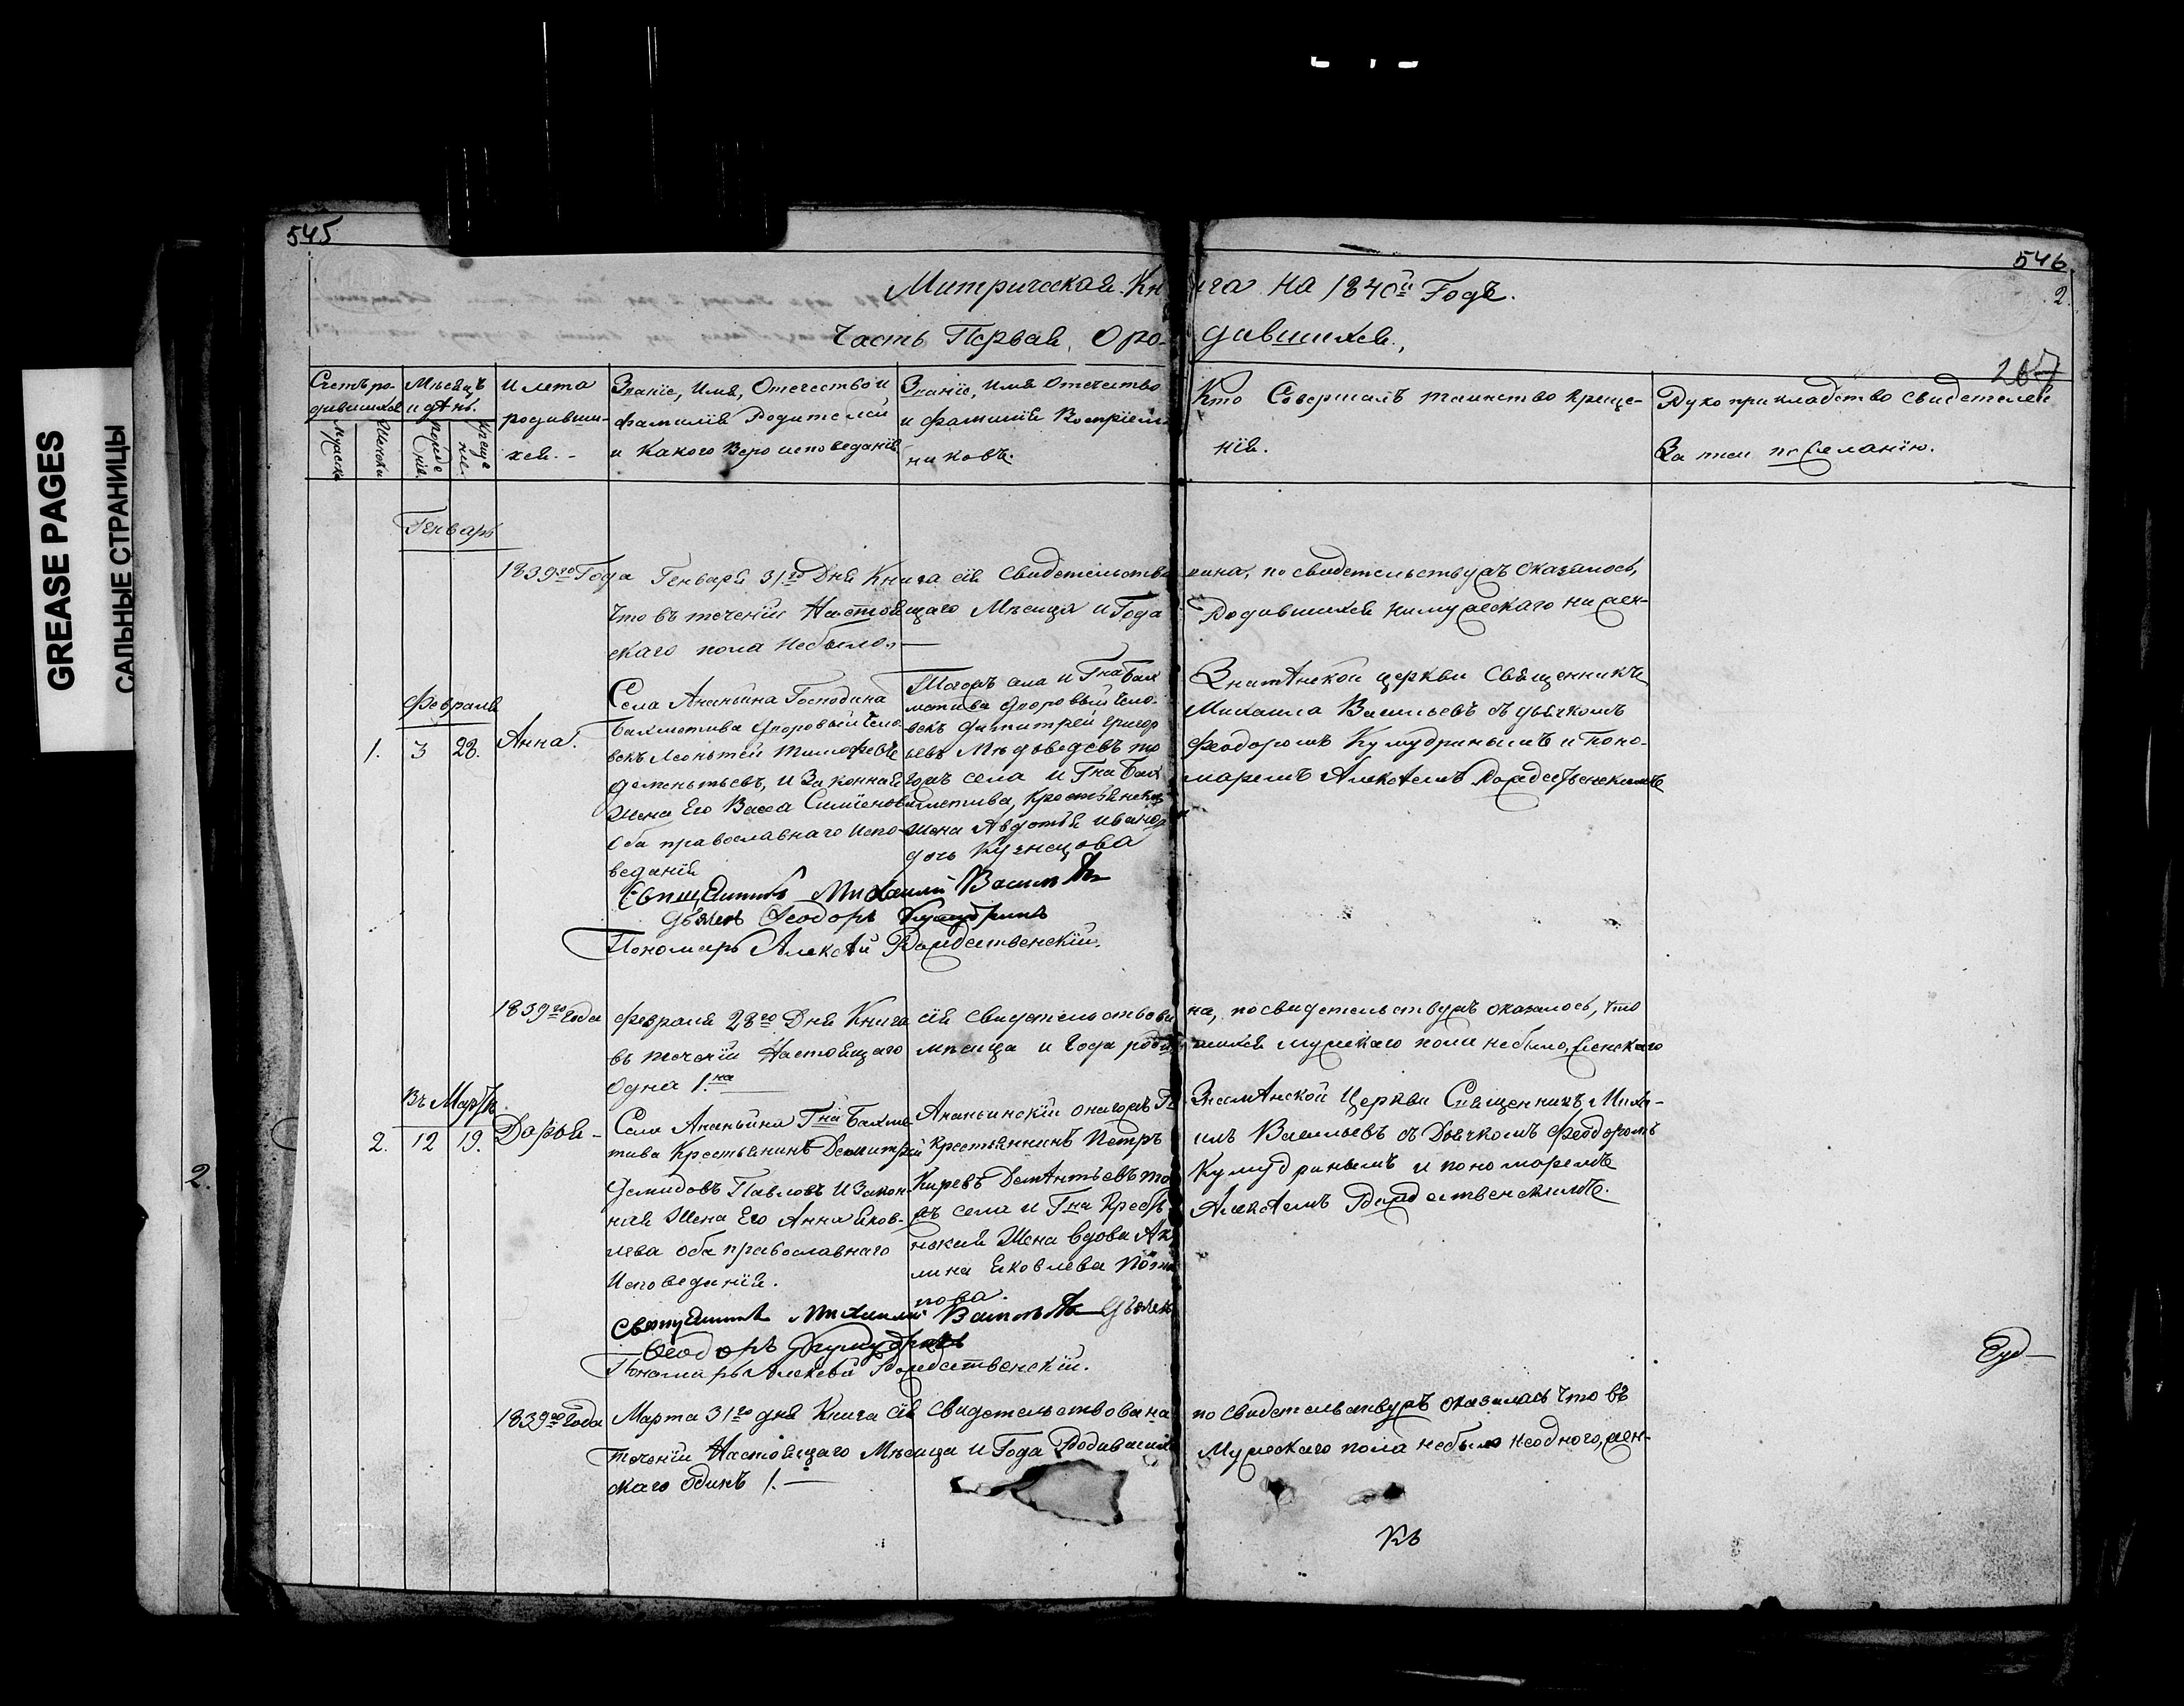 GREASE PAGES
САЛЬНЫЕ СТРАНИЦЫ
2.
545
546
2.
267
Митрическая Книга на 1840й Годъ.
Часть Первая, О родившихся.
Счетъ ро-
дившихся
Мужеска
Женски
Мѣсяцъ
и день.
рожде
нія.
креще
ні
Имета
родивши-
хся.-
Званіе, Имя, Отечество и
фамилія Родителей
и Какого Вероисповеданія
Званіе, Имя Отечество
и фамилія Воспріем
никовъ.
Кто Совершалъ таинство креще-
нія.
Рукоприкладство свидетелей
по желанію.
Генварь
1839го Года Генваря 31го Дня Книга сія Свидетельство
вана, по свидетельству оказалось,
что въ теченіи Настоящаго Мѣсяца и Года
Родившихся ни мужескаго ни жен-
скаго пола небыло.
Февраля
1. 3 28. Анна.
Села Ананьина Господина
Бахметива дворовый чело-
векъ Леонтей Тимофевъ
Деменьтьевъ, и Законная
Жена Его Васса Симіонов
Оба православнаго Испо-
веданія
Тогожъ села и Гна Бах
метива дворовый чело-
векъ Димитрей Григор
ьевъ Мѣдведевъ то
гожъ села и Гна Бах
метива, Крестьянска
жена Авдотья Ивано
дочь Кузнецова
Знаменской церкви Священникъ
Михаила Васильевъ съ дьячкомъ
Феодоромъ Кумудринымъ и поно-
маремъ Алексѣемъ Рождественскимъ
Священникъ Михаилъ Васильевъ
Дьячекъ Феодоръ Кумудринъ
Пономарь Алексѣй Рождественскій.
1839го Года Февраля 28го Дня Книга сія Свидетельствова
на, по свидетельству оказалось, что
въ теченіи Настоящаго мѣсяца и Года родив
шихся мужскаго пола небыло, женскаго
Одна 1.на
Въ Мартѣ.
2. 12 19. Дарья-
Села Ананьина Гна Бахме
тива Крестьянинъ Демитрій
Демидовъ Павловъ и Закон-
ная Жена Его Анна Яков-
лева оба православнаго
Исповеданія.
Ананьинскій онагожъ Г
Крестьянинъ Петръ
Киревъ Деменьтьевъ то
жъ села и Гна Кресть
нская Жена вдова Ак
лина Яковлева Пота
пова.
Знаменской Церкви Священникъ Миха-
илъ Васильевъ съ Дьячкомъ Феодоромъ
Кумудринымъ и пономаремъ
Алексѣемъ Рождественскимъ.
Священникъ Михаилъ Васильевъ Дьячекъ
Феодоръ Кумудринъ
Пономарь Алексѣй Рождественскій.
1839го Года Марта 31го дня Книга сія Свидетельствована
по свидетельству оказалась что въ
теченіи Настоящаго Мѣсяца и Года Родивших
Мужескаго пола небыло неодного, жен-
скаго Одинъ 1.